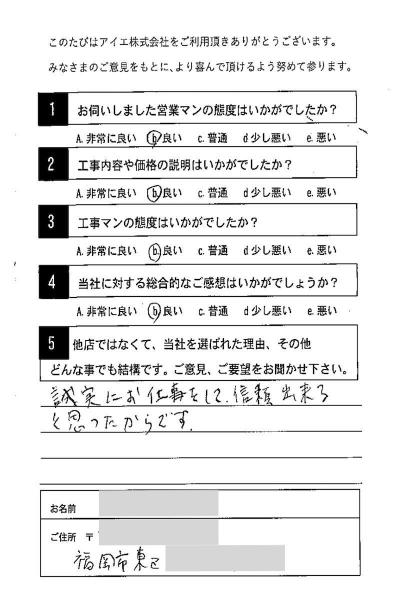 このたびはアイエ株式会社をご利用頂きありがとうございます。
みなさまのご意見をもとに、より喜んで頂けるよう努めて参ります。
1 お伺いしました営業マンの態度はいかがでしたか？
A. 非常に良い b.良い c. 普通 d 少し悪い e. 悪い
2 工事内容や価格の説明はいかがでしたか？
A. 非常に良い b.良い c. 普通 d 少し悪い e. 悪い
3 工事マンの態度はいかがでしたか？
A. 非常に良い b.良い c. 普通 d 少し悪い e. 悪い
4 当社に対する総合的なご感想はいかがでしょうか？
A. 非常に良い b.良い c. 普通 d 少し悪い e. 悪い
5 他店ではなくて、当社を選ばれた理由、その他
どんな事でも結構です。ご意見、ご要望をお聞かせ下さい。
誠実にお仕事をして、信頼出来る
と思ったからです。
お名前
ご住所 〒
福岡市東区